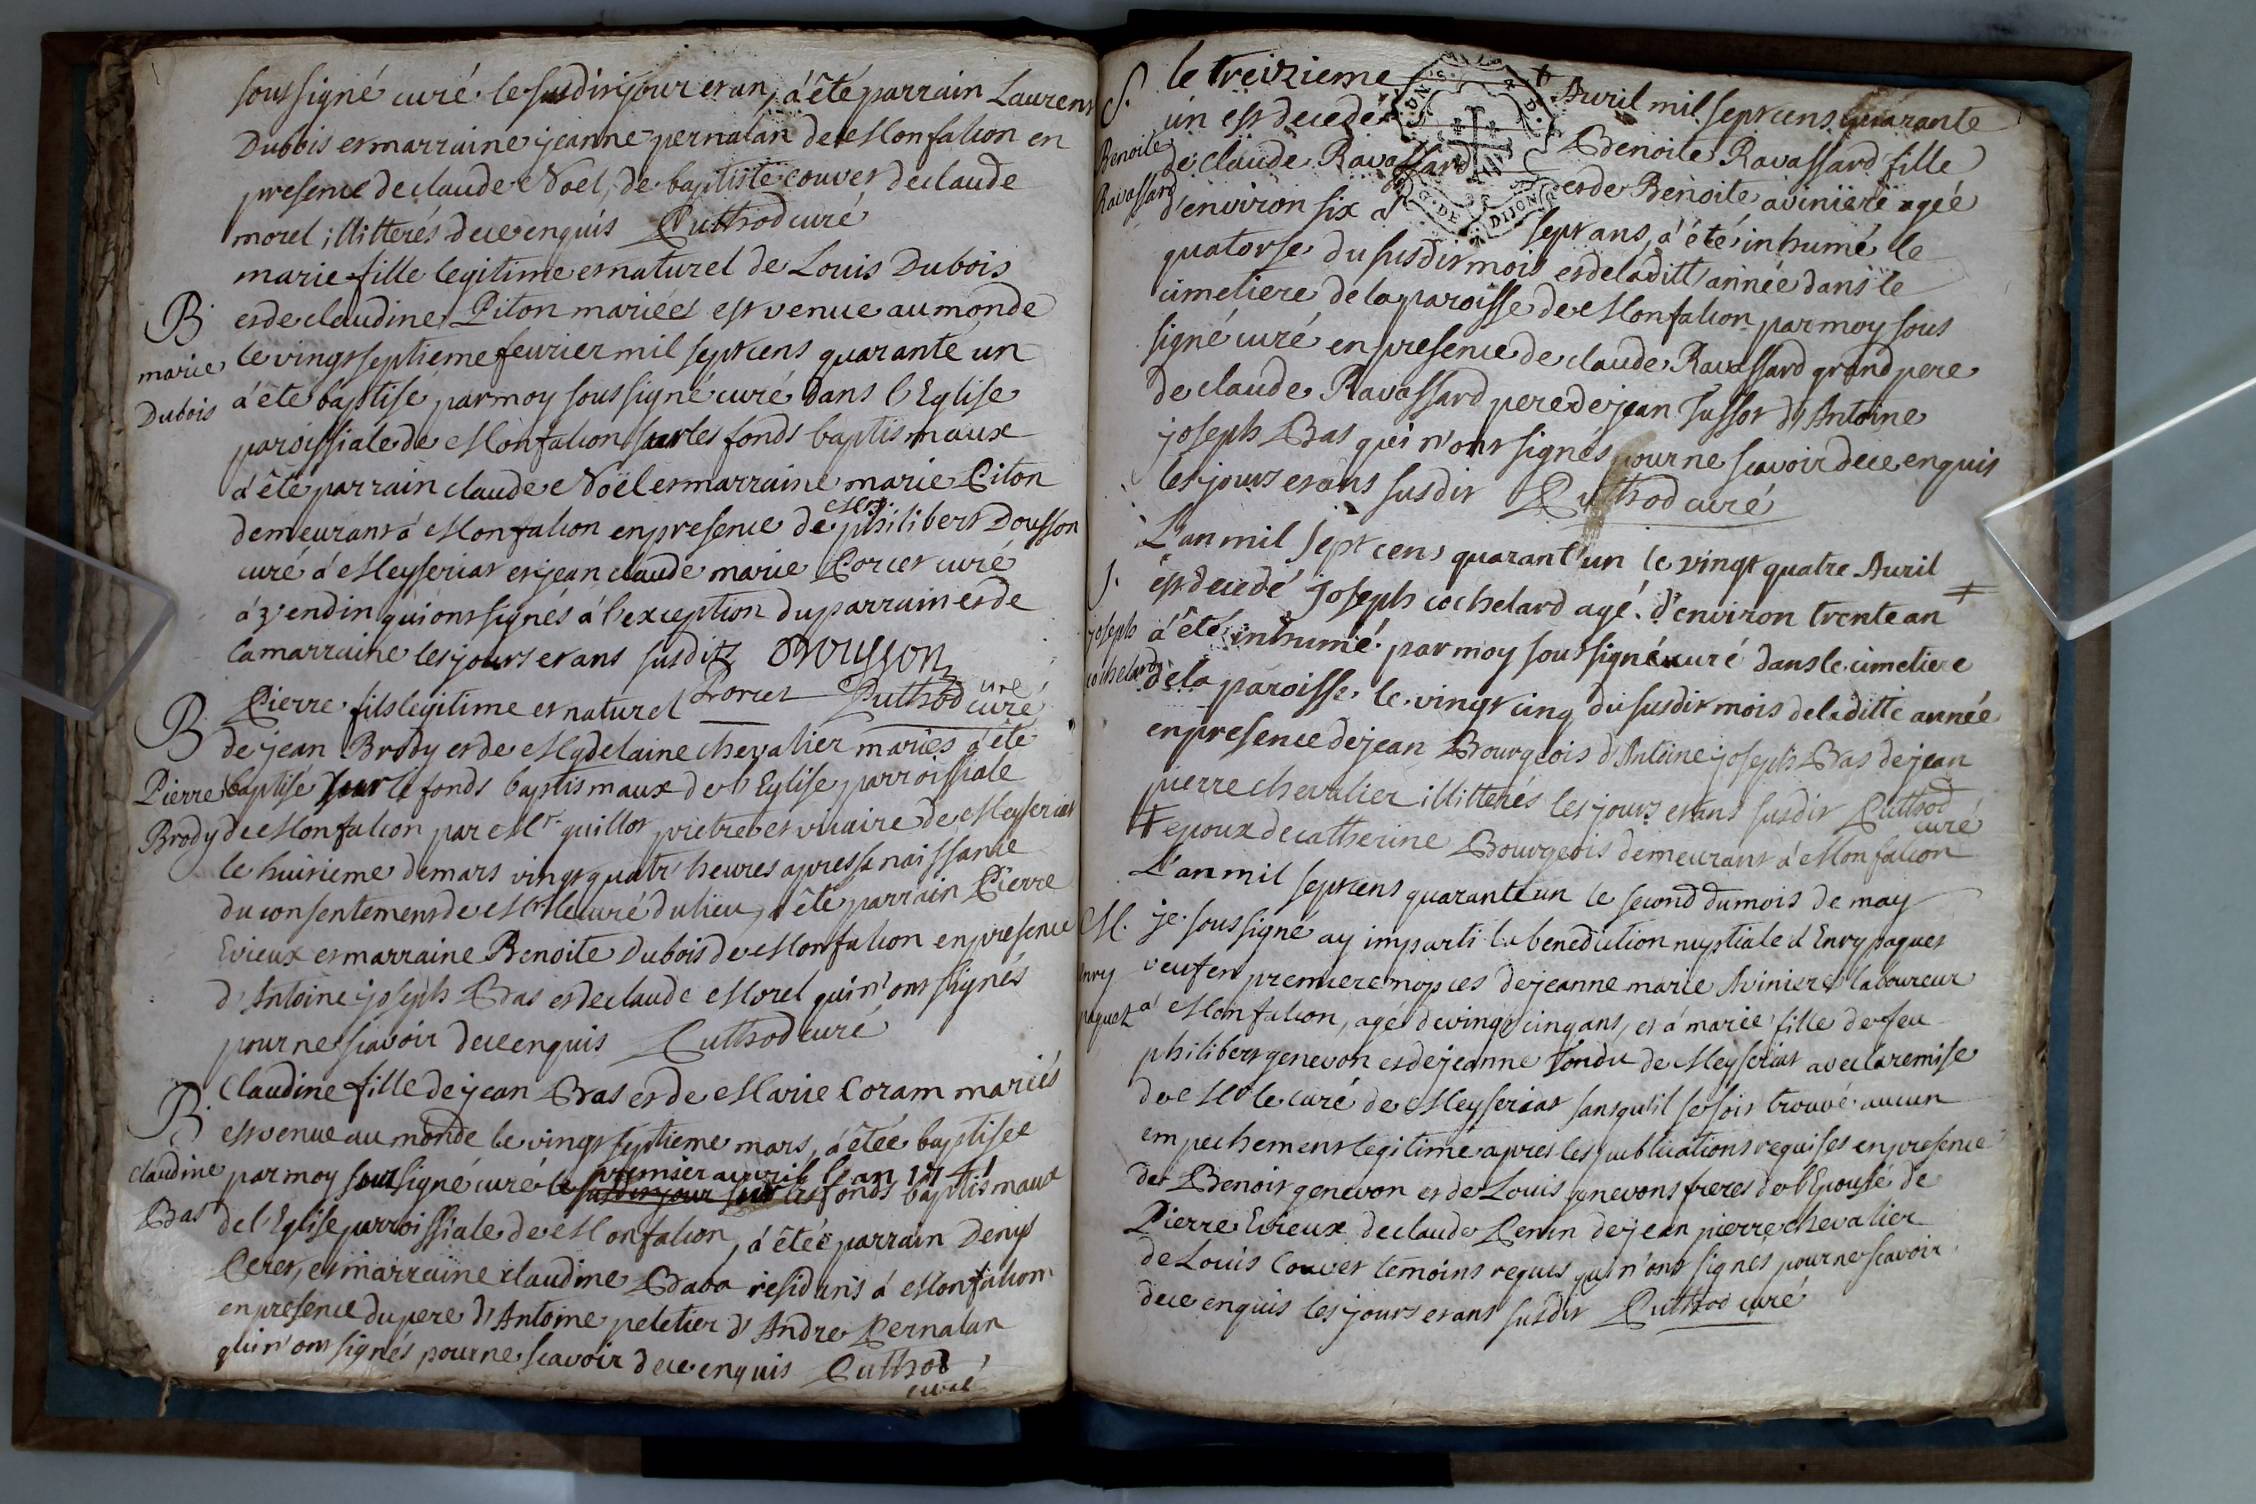 soussigné curé le susdit jour et an, a été parrain Laurent
Dubois et marraine jeanne pernalan de Monfalcon en
presence de claude Noel, de baptiste couvet de claude
morel illitterés de ce enquis Puthod curé
marie fille legitime et naturel de Louis Dubois
B et de claudine Piton mariés est venue au monde
marie le vingt septieme fevrier mil sept cens quarante un
Dubois a été baptisé par moy soussigné curé dans l'Eglise
paroissiale de Monfalcon sur les fonds baptismaux
a été parrain claude Noël et marraine marie Piton
demeurant á Monfalcon en presence de Mre philibert Dousson
curé á Meyseriat et jean claude marie Porcet curé
á vendin qui ont signés á l'exception du parrain et de
la marraine les jours et ans susdits Dousson
Pierre fils legitime et naturel Porcet Puthod curé curé
B de jean Brody et de Magdelaine chevalier mariés a été
Pierre baptisé sur le fonds baptismaux de l'Eglise parroissiale
Brody de Monfalcon par Mr. guillot prietre et vicaire de Meyseriat
le huitieme de mars vingt quatr' heures apres sa naissance
du consentement de Mr le curé du lieu, a été parrain Pierre
Evieux et marraine Benoite Dubois de Monfalcon en presence
d'Antoine joseph Bas et de claude Morel qui n'ont signés
pour ne scavoir de ce enquis Puthod curé
Claudine fille de jean Bas et de Marie Coram mariés
B. est venue au monde le vingt septieme mars, a étée baptisée
premier avvril l'an 1741
claudine par moy soussigné curé le susdit jour sur les fonds baptismaux
Bas de l'Eglise parroissiale de Monfalcon, a étée parrain Denys
Peret, et marraine claudine Bava residants á Monfalcon
en presence du pere d'Antoine peletier d'Andre Pernalan
qui n'ont signés pour ne scavoir de ce enquis Puthod
curé
S. le treizieme Avril mil sept cens quarante
un est decedée Benoite Ravassard fille
Benoite de claude Ravassard et de Benoite aviniere agée
Ravassard d'environ six a sept ans, a été inhumé le
quatorse du susdit mois et de laditt' année dans le
cimetiere de la paroisse de Monfalcon par moy sous
signé curé en presence de claude Ravassard grand pere
de claude Ravassard pere de jean Tussot d'Antoine
joseph Bas qui n'ont signés pour ne scavoir de ce enquis
les jours et ans susdit Puthod curé
L'an mil sept cens quarant'un le vingt quatre Avril
S. est decedé Joseph cochelard agé d'environ trente an ‡
joseph a été inhumé par moy soussigné curé dans le cimetiere
cochelard de la paroisse le vingt cinq du susdit mois de laditte année
en presence de jean Bourgeois d'Antoine joseph Bas de jean
pierre chevalier illitterés les jours et ans susdit Puthod
curé
‡ epoux de catherine Bourgeois demeurant á Monfalcon
L'an mil sept cens quarante un le second du mois de may
M. je soussigné ay imparti la benediction nuptiale á Enry paquet
Enry veuf en premiere nopces de jeanne marie Aviniere laboureur
paquet á Monfalcon, agé de vingt cinq ans, et á marie fille de feu
philibert genevon et de jeanne Tondu de Meyseriat avec la remise
de Mr le curé de Meyseriat sans qu'il se soit trouvé aucun
empechement legitime apres les publications requises en presence
de Benoit genevon et de Louis genevons freres de l'Epousé de
Pierre Evieux de claude Penin de jean pierre chevalier
de Louis Couvet temoins requis qui n'ont signes pour ne scavoir
de ce enquis les jours et ans susdit Puthod curé
G. DE DIJON